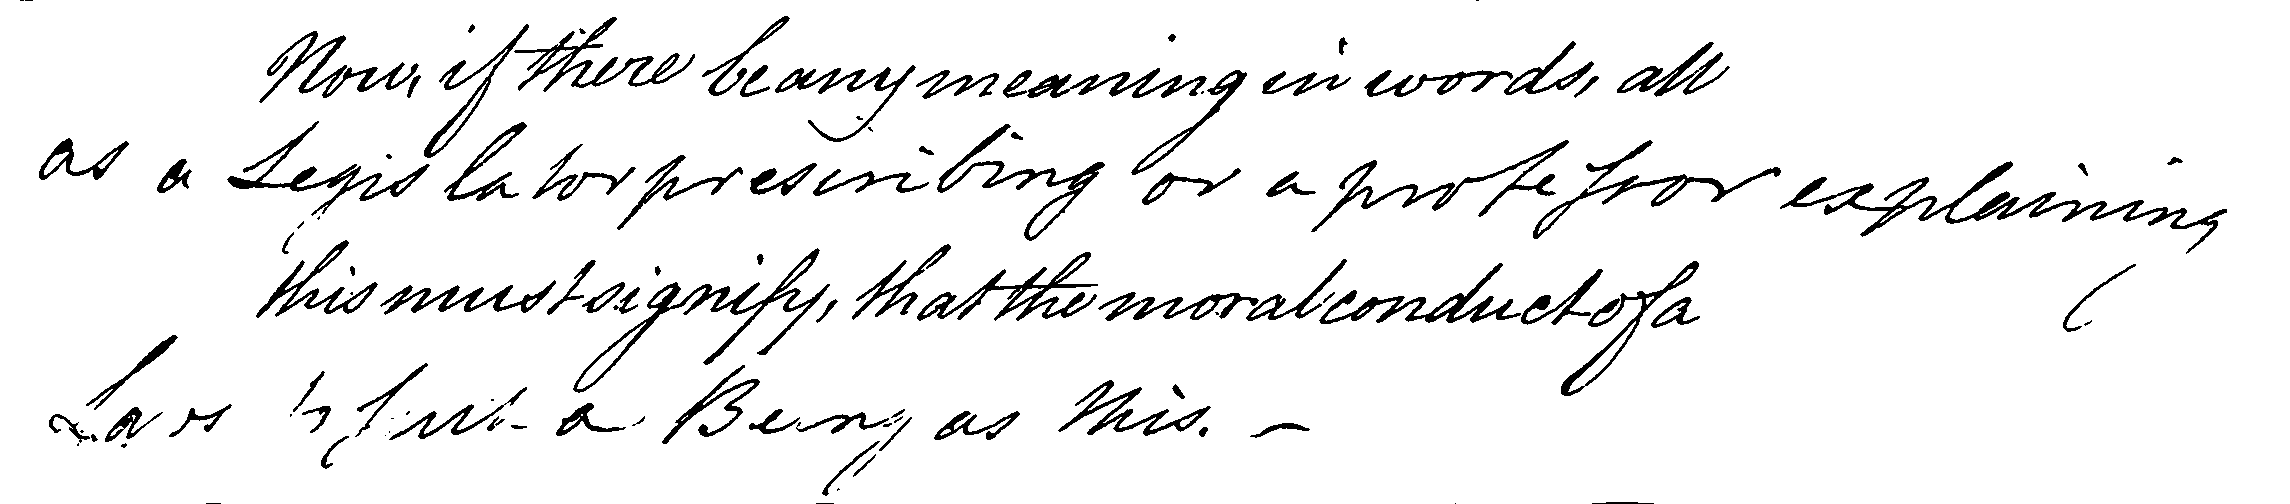 Now, if there be any meaning in words, all
as a Legislator prescribing or a professor explaining
this must signify, that the moral conduct of a
Laws a Being as this. -